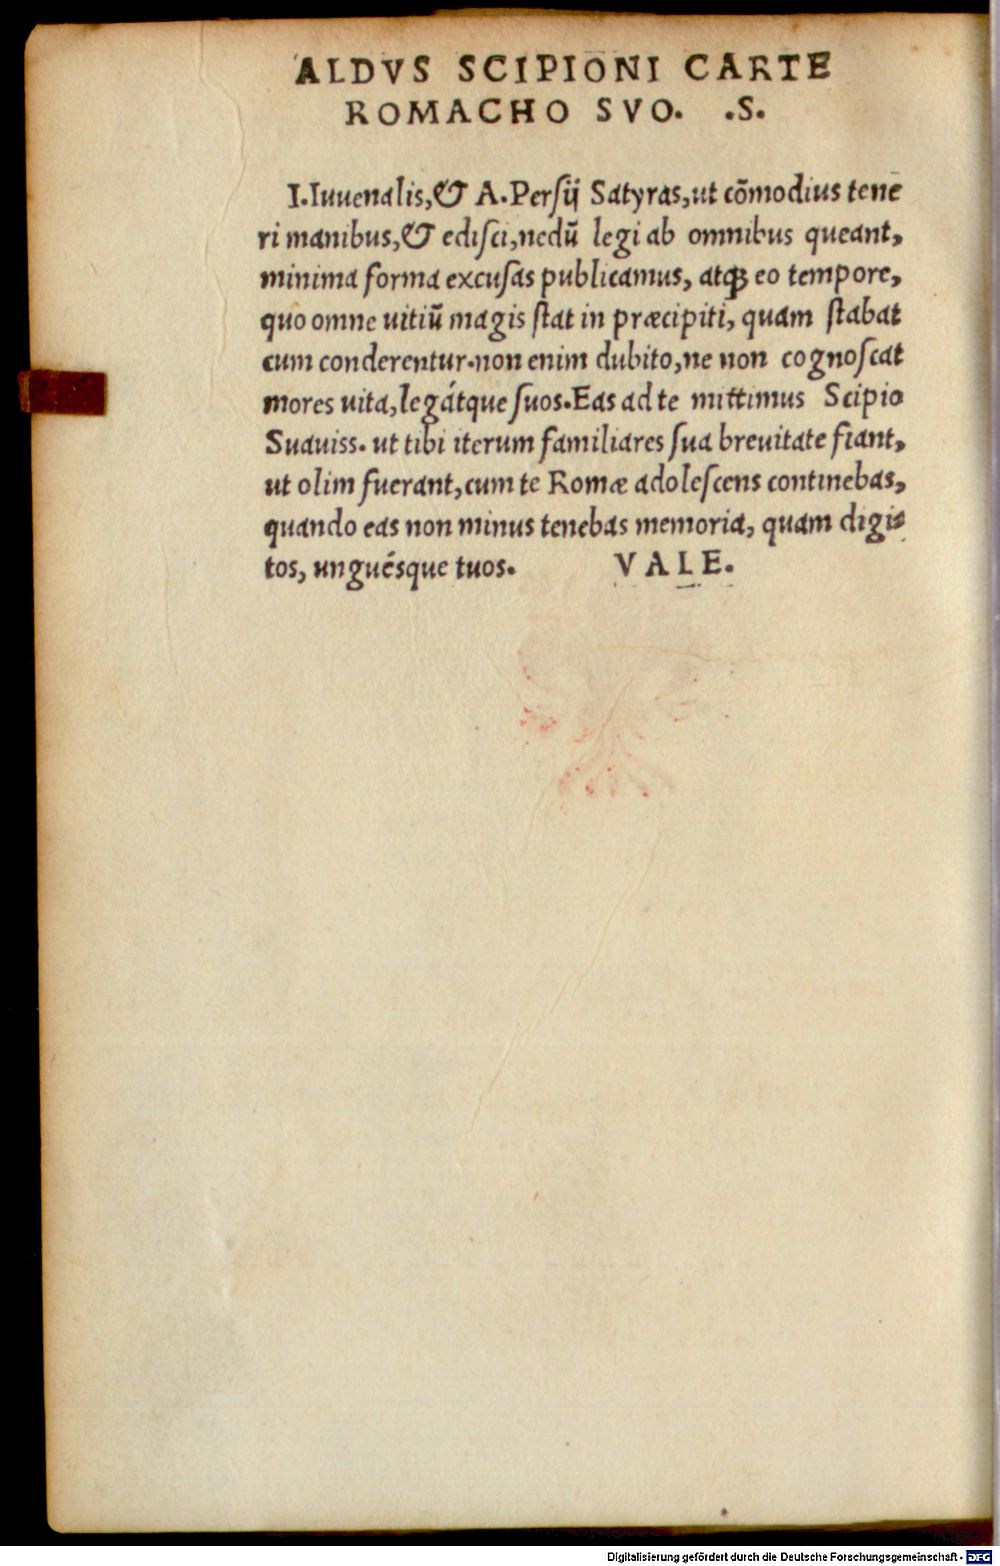 ALDVS SCIPIONI CARTE
ROMACHO SVO. .S.
I.Iuuenalis,& A.Persij Satyras,ut cōmodius tene
ri manibus,& edisci,nedū legi ab omnibus queant,
minima forma excusas publicamus, atq; eo tempore,
quo omne uitiū magis stat in præcipiti, quam stabat
cum conderentur.non enim dubito,ne non cognoscat
mores uita,legátque suos.Eas ad te mittimus Scipio
Suauiss. ut tibi iterum familiares sua breuitate fiant,
ut olim fuerant,cum te Romæ adolescens continebas,
quando eas non minus tenebas memoria, quam digi-
tos, unguésque tuos. VALE.
Digitalisierung gefördert durch die Deutsche Forschungsgemeinschaft - DFG